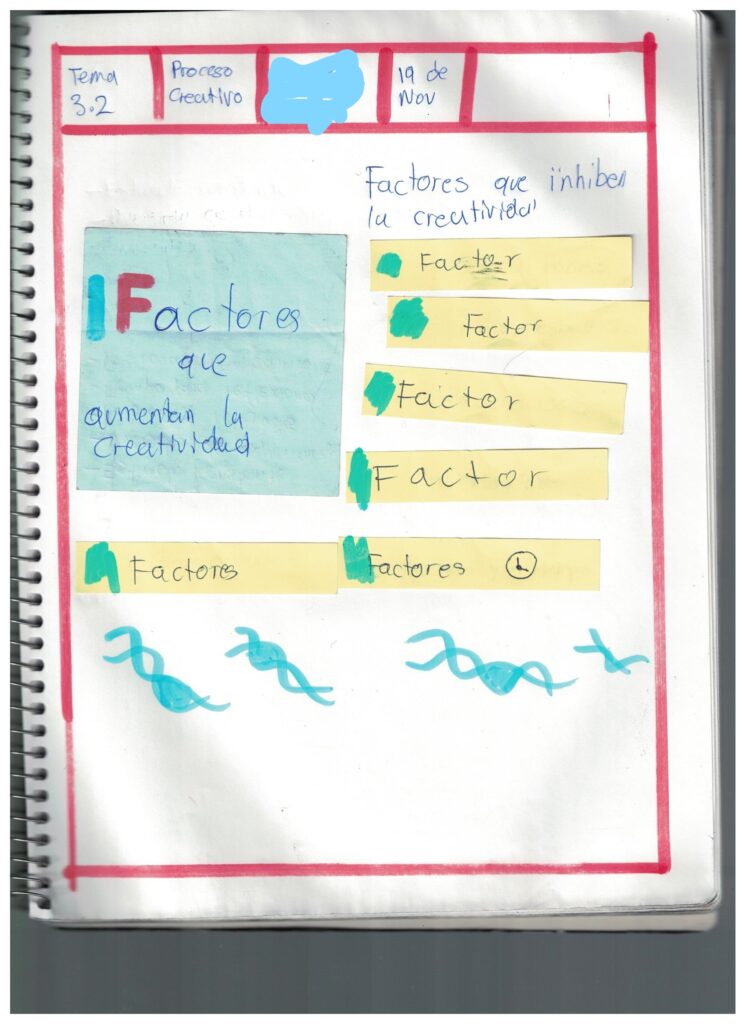 Tema
3.2
Proceso
Creativo
19 de
Nov
Factores que inhiben
la creatividad
Factores
que
aumentan la
creatividad
Factor
Factor
Factor
Factor
Factores
Factores